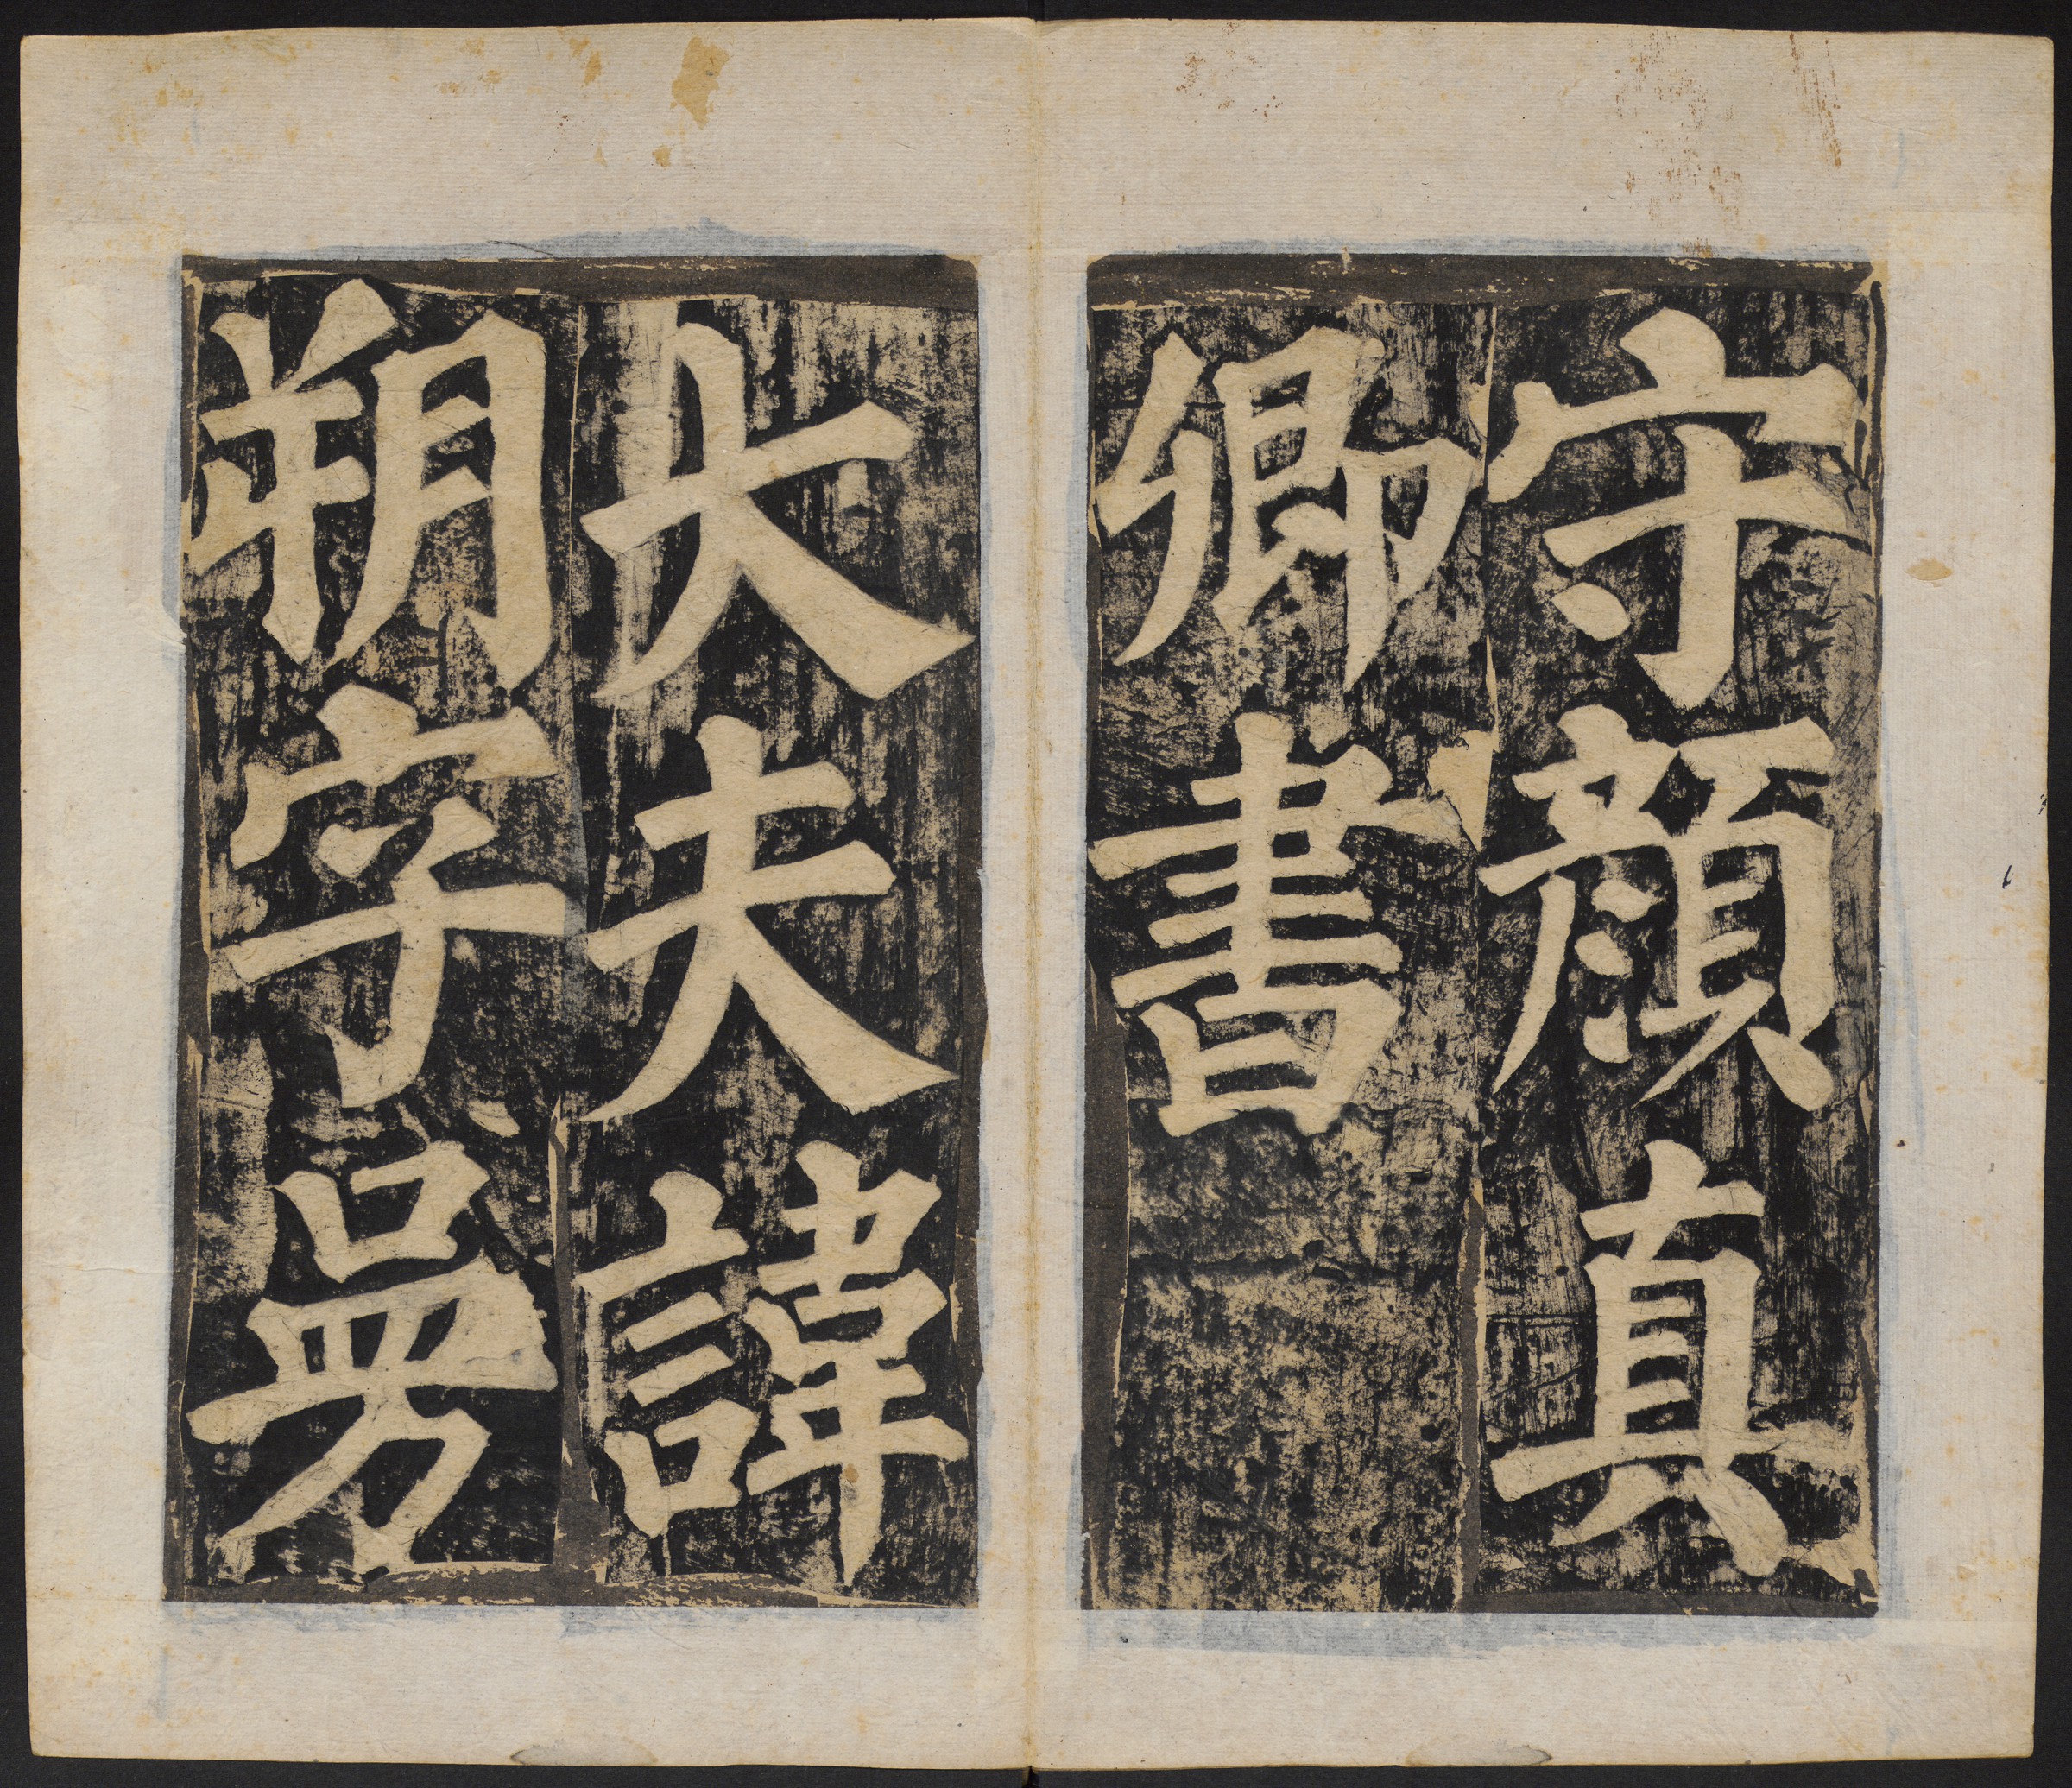 守顔真
卿書
大夫諱
朔字曼